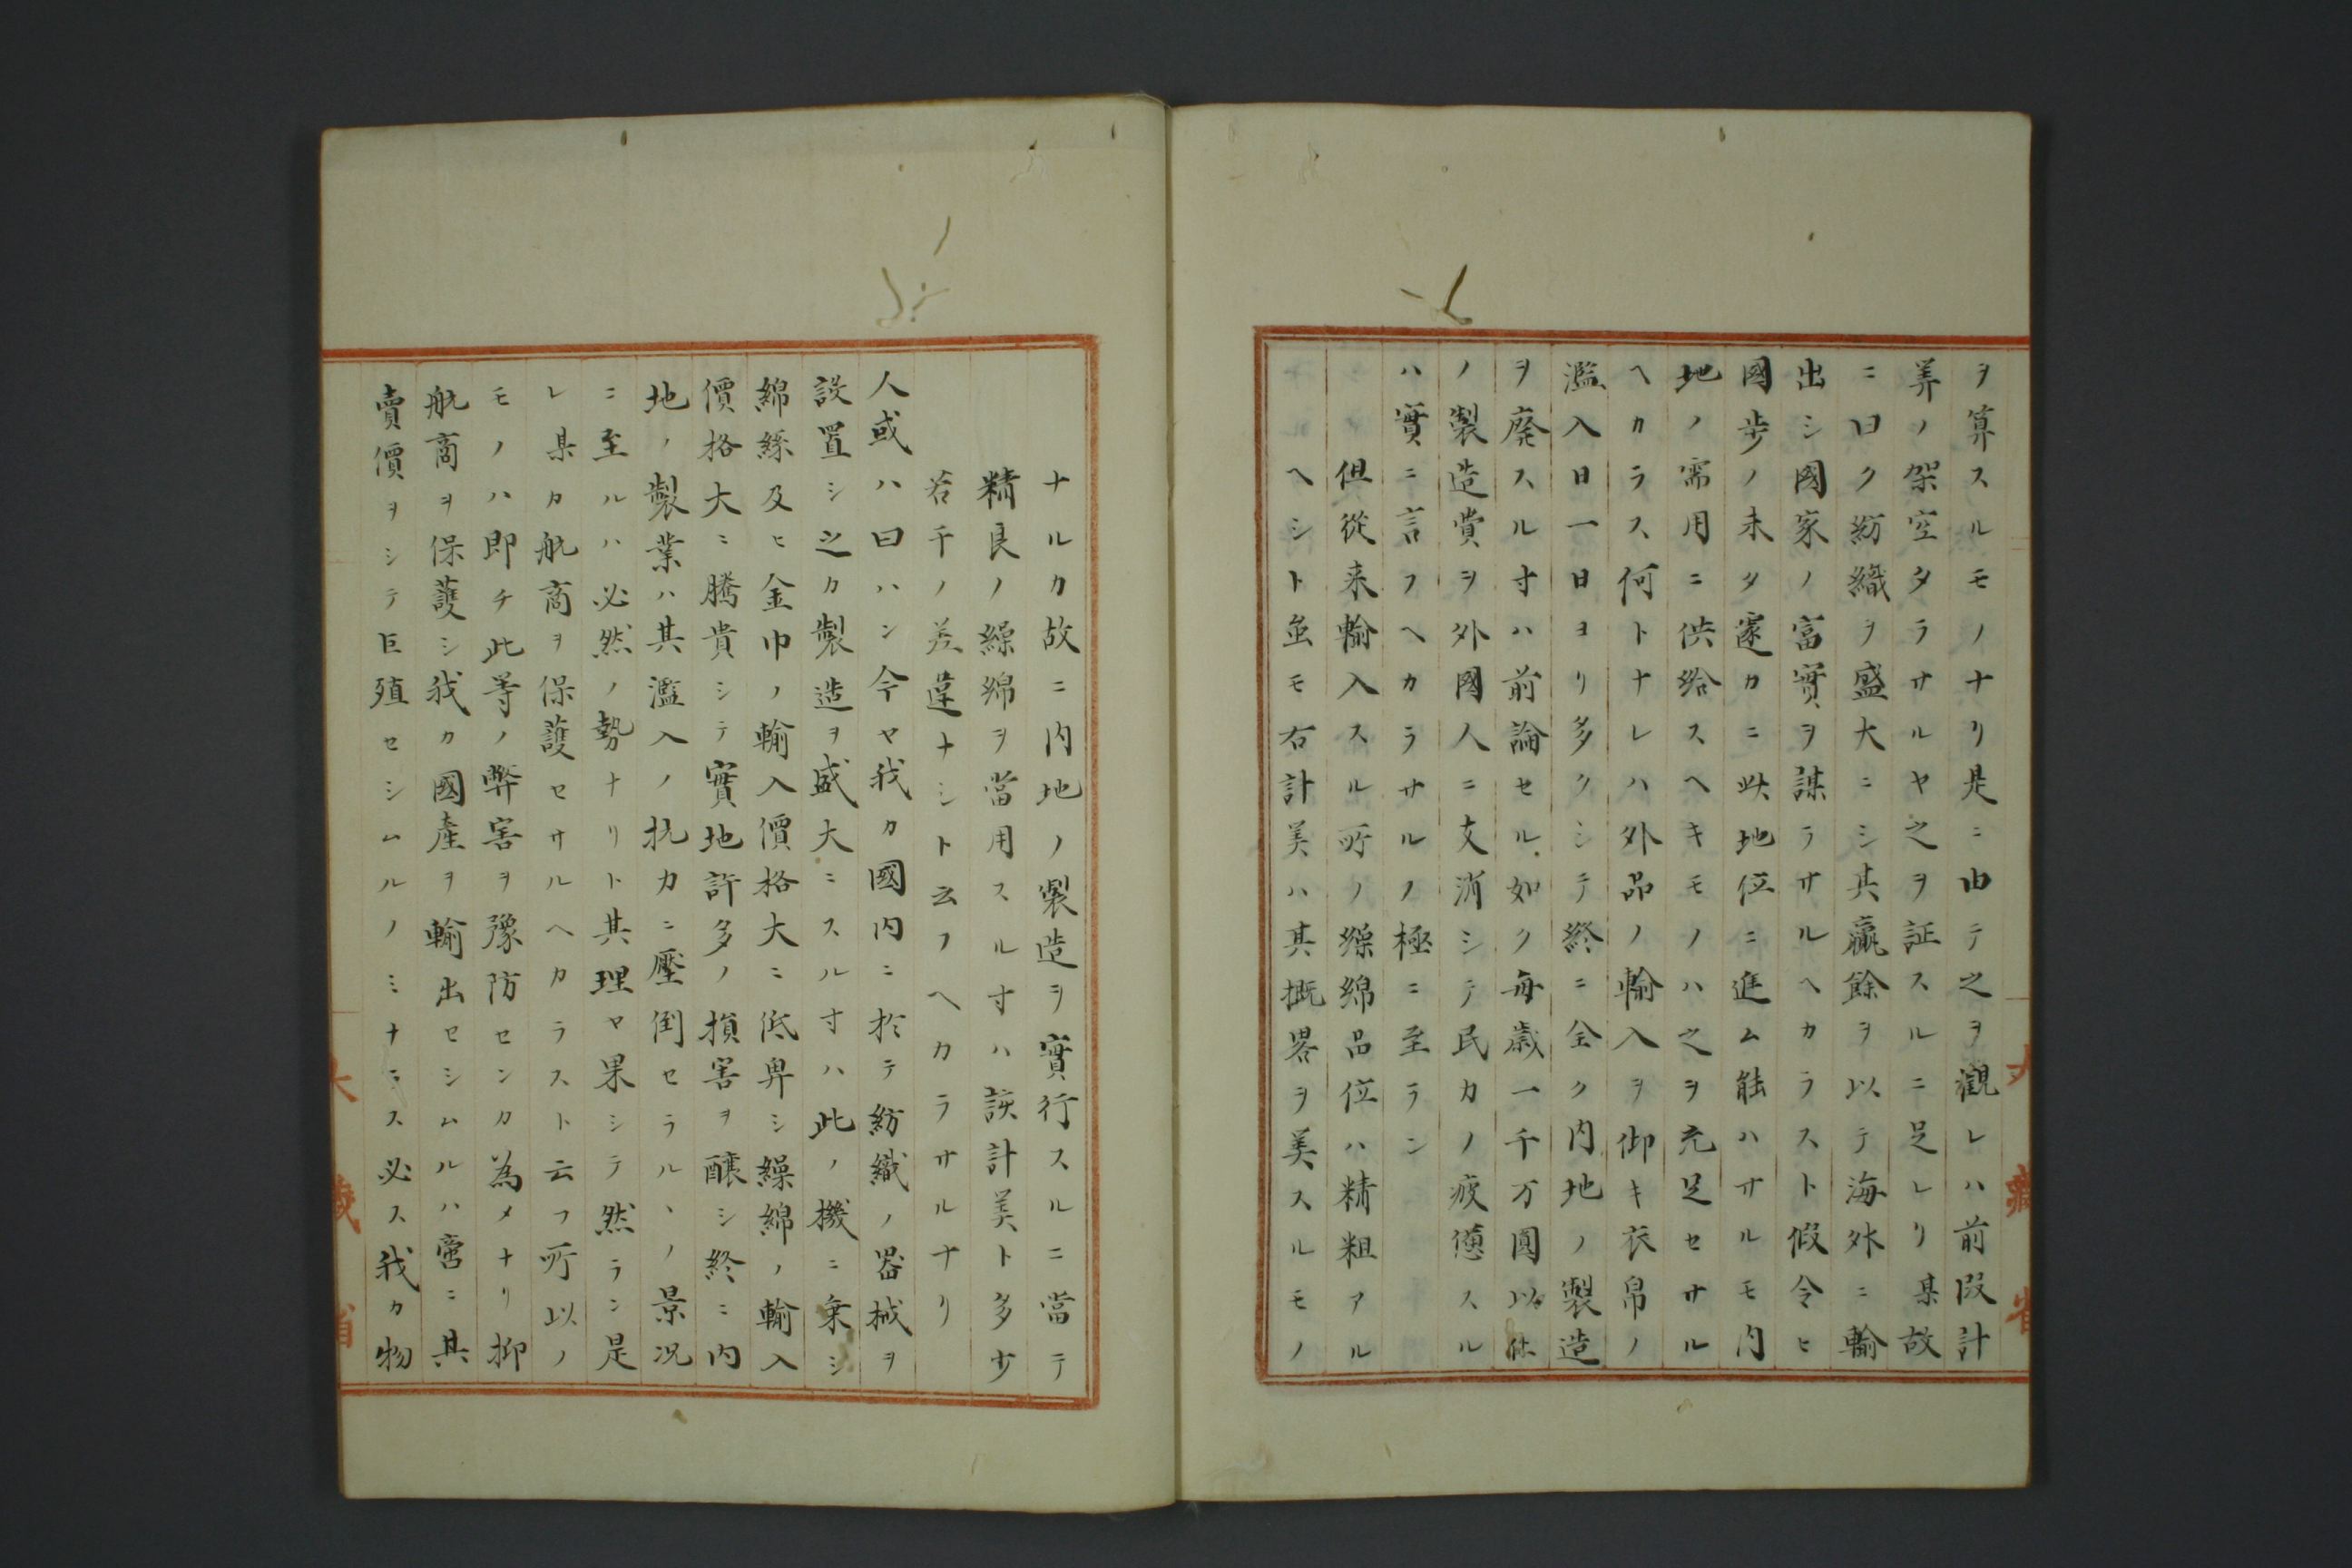 ヲ算スルモノナリ是ニ由テ之ヲ觀レハ前段計
筭ノ架空タラサルヤ之ヲ証スルニ足レリ某故
ニ曰ク紡織ヲ盛大ニシ其贏餘ヲ以テ海外ニ輸
出シ國家ノ富實ヲ謀ラサルヘカラスト假令ヒ
國歩ノ未タ遽カニ此地位ニ進ム能ハサルモ内
地ノ需用ニ供給スヘキモノハ之ヲ充足セサル
ヘカラス何トナレハ外品ノ輸入ヲ仰キ衣帛ノ
濫入日一日ヨリ多クシテ終ニ全ク内地ノ製造
ヲ廃スル寸ハ前論セル如ク毎歳一千万圓以上
ノ製造賞ヲ外國人ニ支消シテ民力ノ疲憊スル
ハ實ニ言フヘカラサルノ極ニ至ラン
但從来輸入スル所ノ繰綿品位ハ精粗アル
ヘシト虽モ右計筭ハ其概畧ヲ筭スルモノ
ナルカ故ニ内地ノ製造ヲ實行スルニ當テ
精良ノ繰綿ヲ當用スル寸ハ該計筭ト多少
若干ノ差違ナシト云フヘカラサルナリ
人或ハ曰ハン今ヤ我カ國内ニ於テ紡織ノ器械ヲ
設置シ之カ製造ヲ盛大ニスル寸ハ此ノ機ニ乗シ
綿絲及ヒ金巾ノ輸入價格大ニ低卑シ繰綿ノ輸入
價格大ニ騰貴シテ實地許多ノ損害ヲ釀シ終ニ内
地ノ製業ハ其濫入ノ抗力ニ壓倒セラルヽノ景况
ニ至ルハ必然ノ勢ナリト其理ヤ果シテ然ラン是
レ某カ航商ヲ保護セサルヘカラスト云フ所以ノ
モノハ即チ此等ノ弊害ヲ豫防センカ為メナリ抑
航商ヲ保護シ我カ國産ヲ輸出セシムルハ啻ニ其
賣價ヲシテ巨殖セシムルノミナラス必ス我カ物
大藏省
大藏省